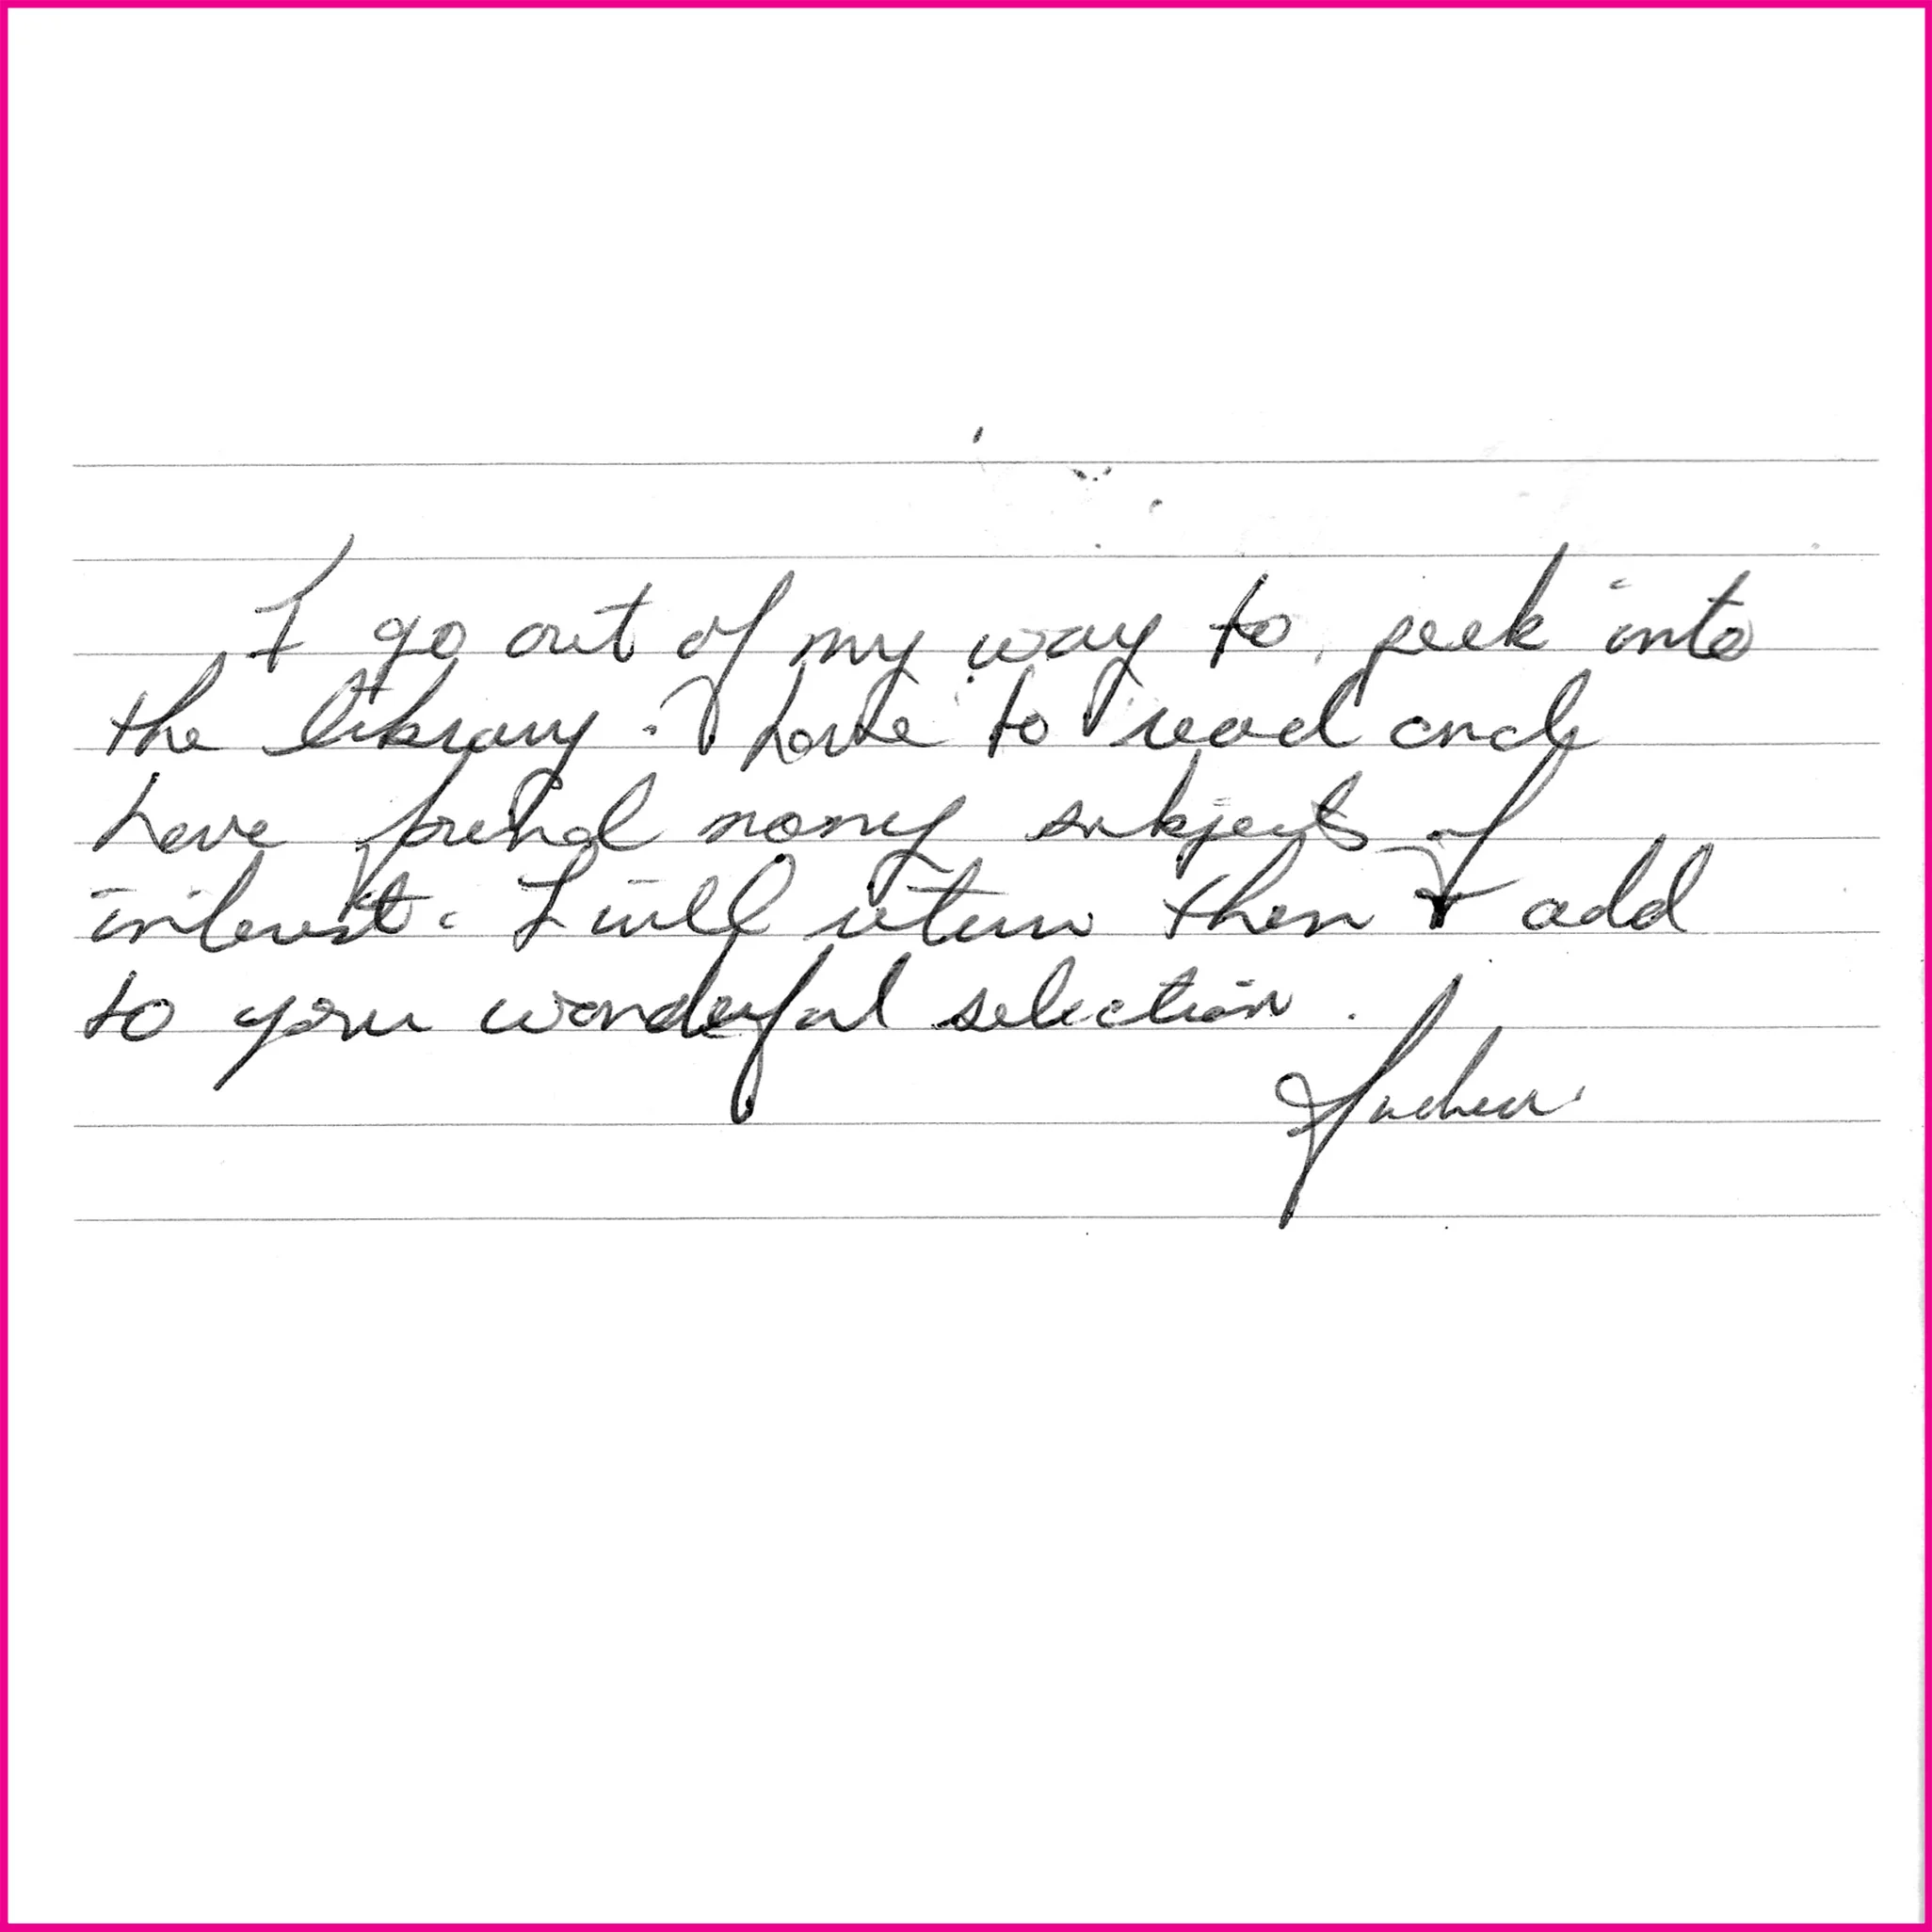 I go out of my way to peek into
the library. I love to read and
have found many subjects of
interest. I will return them & add
to your wonderful selection.